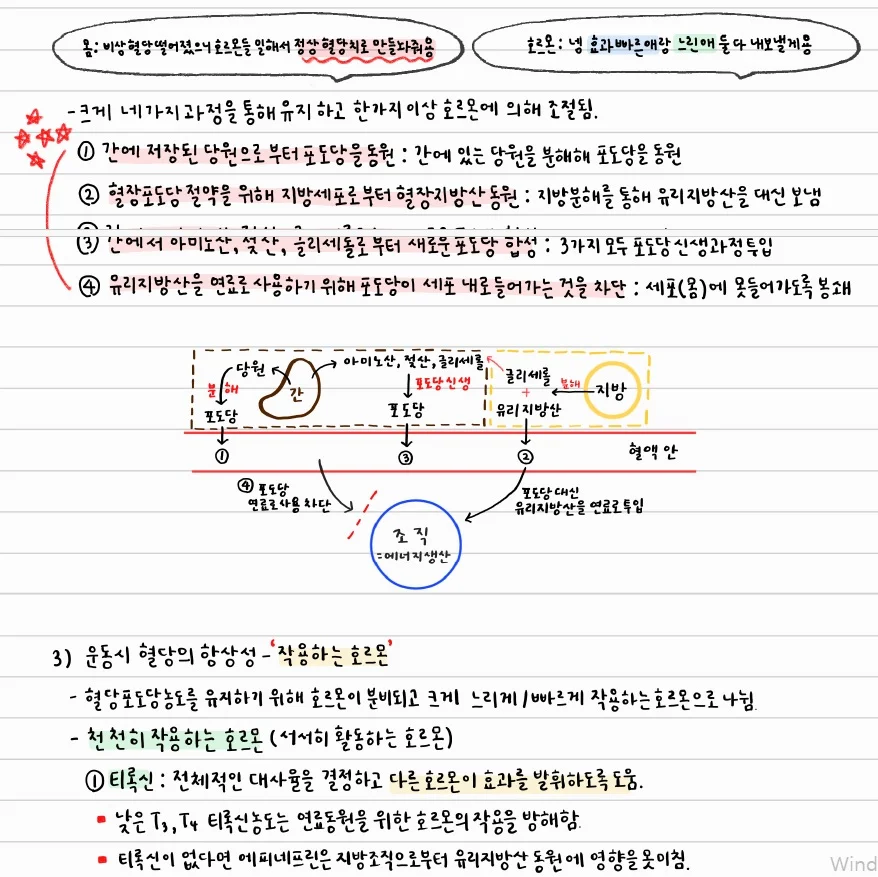 몸 : 비상 혈당 떨어졌으니 호르몬들 일해서 정상 혈당치로 만들놔줘용
호르몬 : 넹 효과빠른애랑 느린애 둘 다 내보낼게용
- 크게 네가지 과정을 통해 유지하고 한가지 이상 호르몬에 의해 조절됨.
① 간에 저장된 당원으로부터 포도당을 동원 : 간에 있는 당원을 분해해 포도당을 동원
② 혈장포도당 절약을 위해 지방세포로부터 혈장지방산 동원 : 지방분해를 통해 유리지방산을 대신 보냄
③ 간에서 아미노산, 젖산, 글리세롤로부터 새로운 포도당 합성 : 3가지 모두 포도당 신생과정 투입
④ 유리지방산을 연료로 사용하기 위해 포도당이 세포 내로 들어가는 것을 차단 : 세포(몸)에 못들어가도록 봉쇄
당원
간
아미노산, 젖산, 글리세롤
글리세롤
분해
지방
분해
포도당 신생
+
포도당
포도당
유리지방산
① ③ ②
혈액 안
④ 포도당
연료로 사용 차단
포도당 대신
유리지방산을 연료로 투입
조직
=에너지생산
3) 운동시 혈당의 항상성 - '작용하는 호르몬'
- 혈당포도당농도를 유지하기 위해 호르몬이 분비되고 크게 느리게 / 빠르게 작용하는 호르몬으로 나뉨.
- 천천히 작용하는 호르몬 (서서히 활동하는 호르몬)
① 티록신 : 전체적인 대사율을 결정하고 다른 호르몬이 효과를 발휘하도록 도움.
▪ 낮은 T₃, T₄ 티록신농도는 연료동원을 위한 호르몬의 작용을 방해함.
▪ 티록신이 없다면 에피네프린은 지방조직으로부터 유리지방산 동원에 영향을 못미침.
Wind